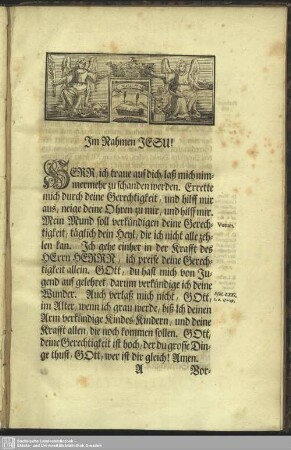 Im Nahmen JESU!
HERR, ich traue auf dich, laß mich nim-
mermehr zu schanden werden. Errette
mich durch deine Gerechtigkeit, und hilff mir
aus, neige deine Ohren zu mir, und hilff mir.
Mein Mund soll verkündigen deine Gerech-
tigkeit, täglich dein Heyl, die ich nicht alle zeh-
len kan. Ich gehe einher in der Krafft des
HErrn HERRN, ich preise deine Gerech-
tigkeit allein. GOtt, du hast mich von Ju-
gend auf gelehret darum verkündige ich deine
Wunder. Auch verlaß mich nicht, GOtt,
im Alter, wenn ich grau werde, biß ich deinen
Arm verkündige Kindes-Kindern, und deine
Krafft allen, die noch kommen sollen. GOtt,
deine Gerechtigkeit ist hoch, der du grosse Din-
ge thust, GOtt, wer ist dir gleich! Amen.
A Vor-
Votum.
Psal. LXXI,